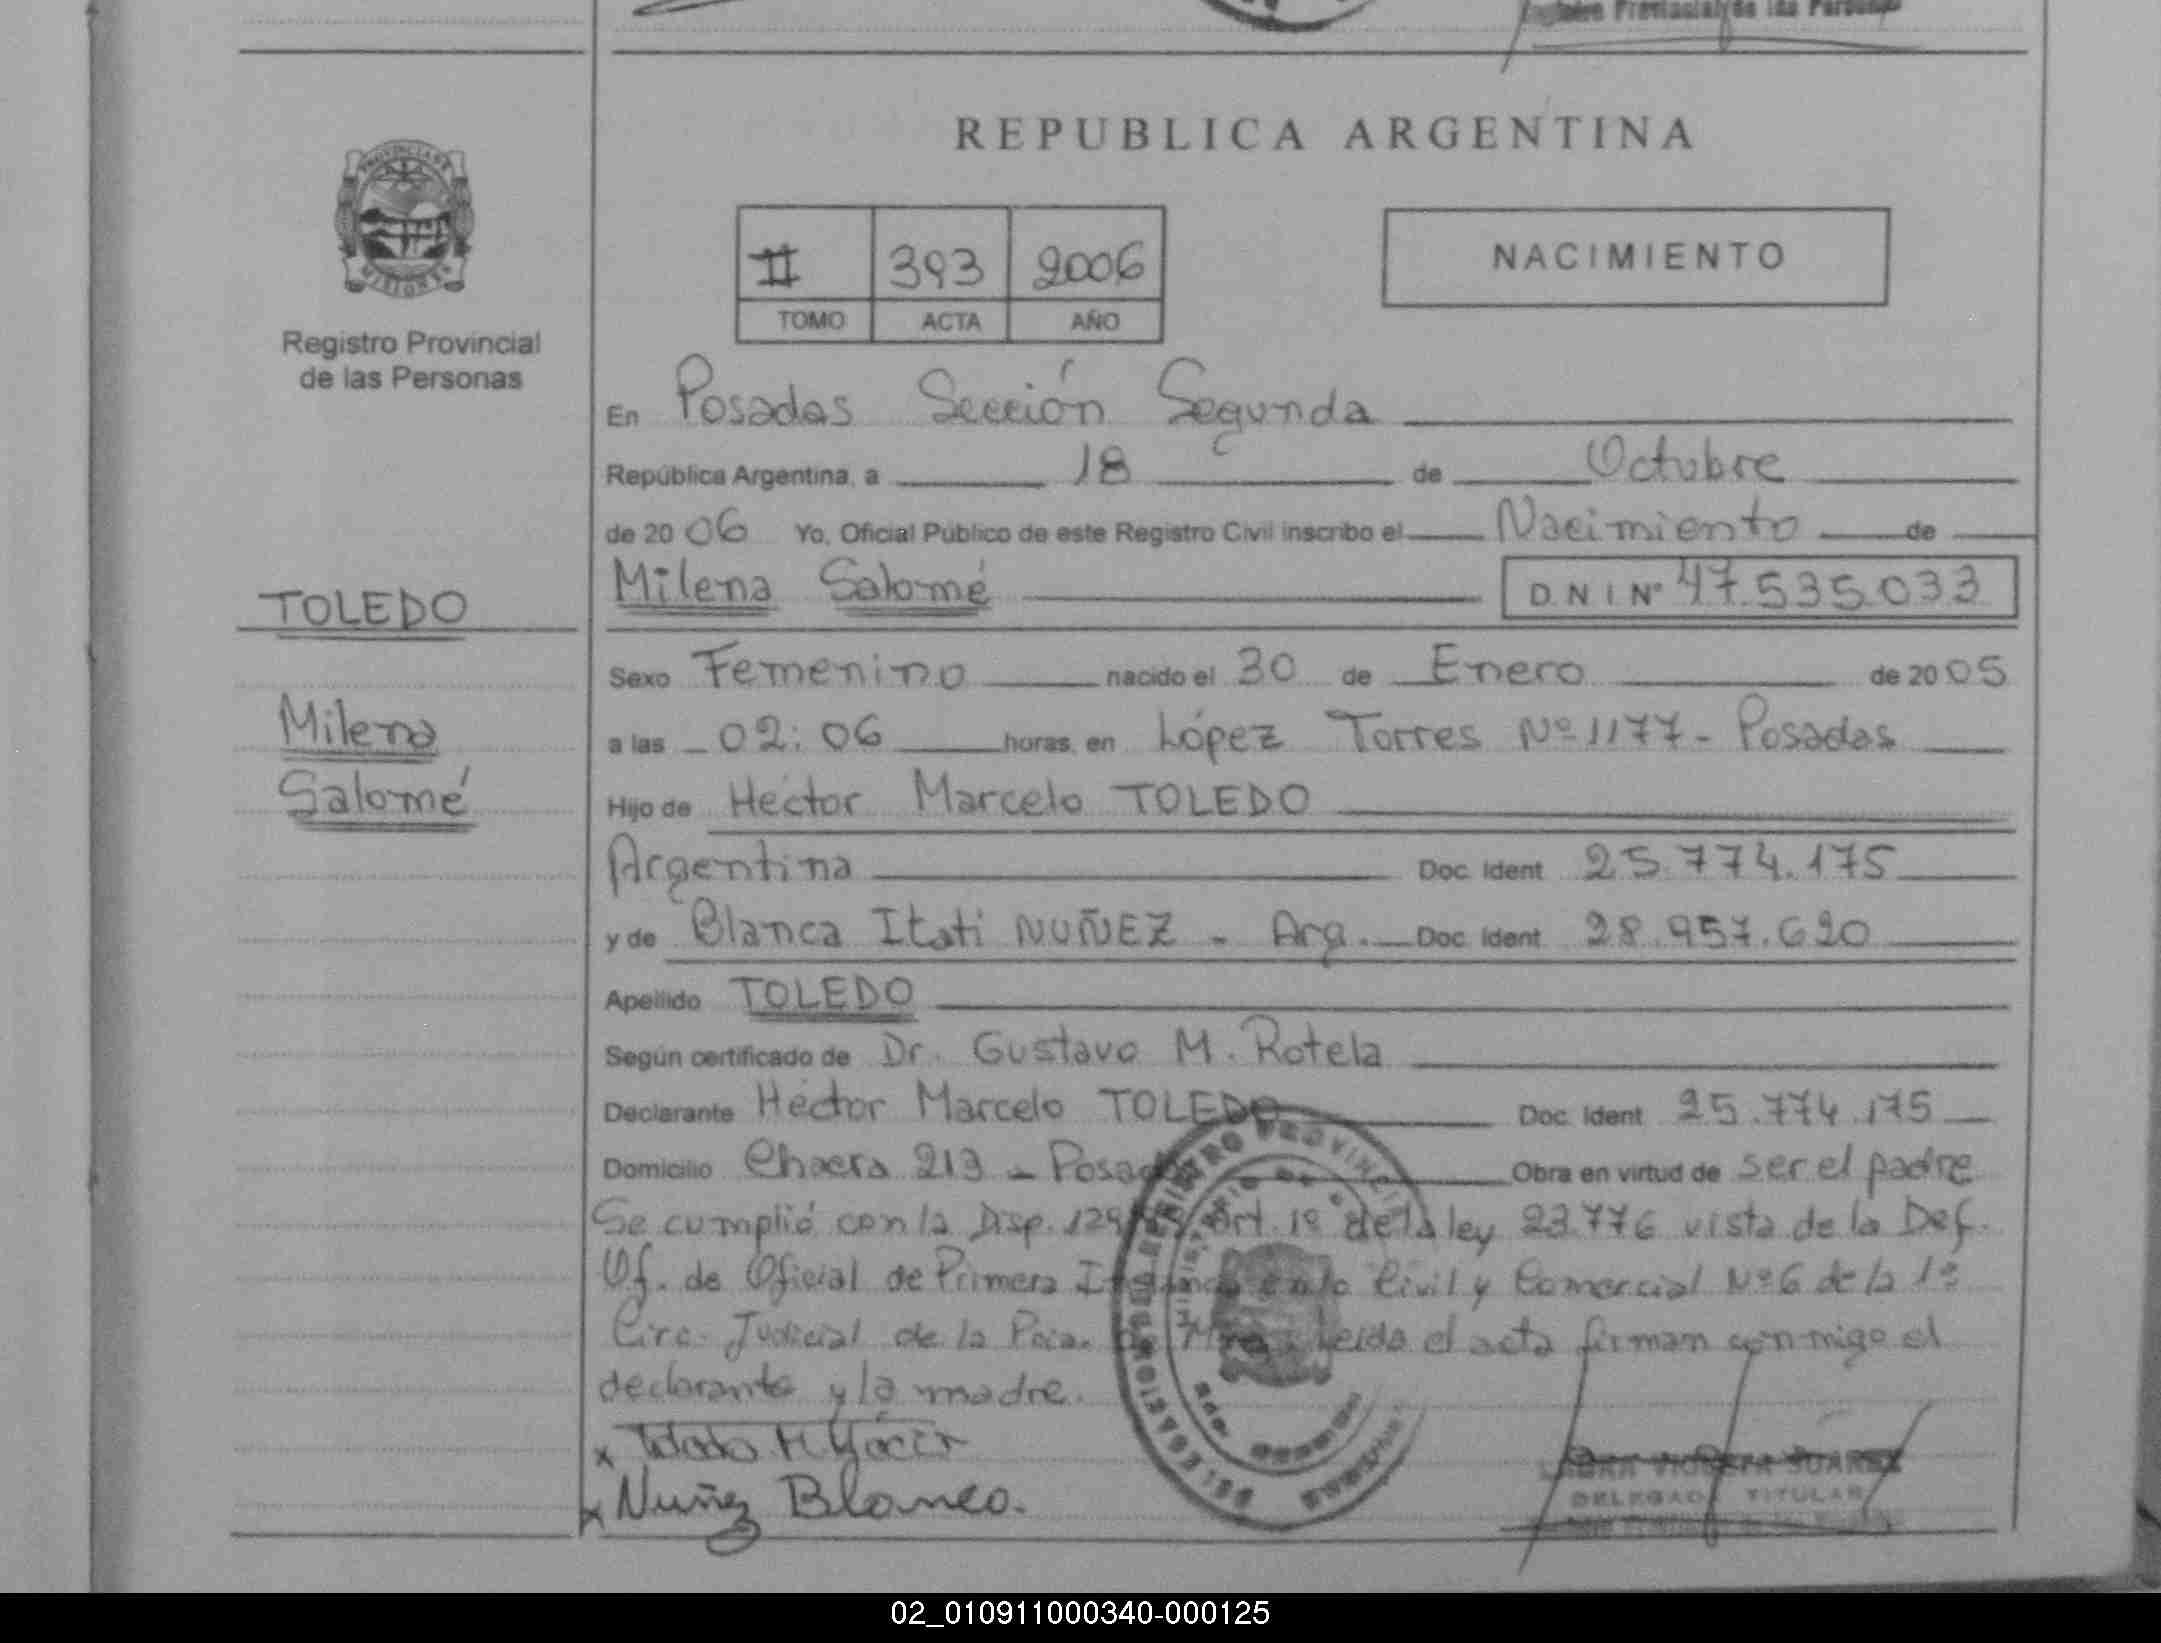 Registro Provincial de las Personas
REPUBLICA ARGENTINA
PROVINCIA DE
MISIONES
Registro Provincial
de las Personas
II 393 2006
TOMO ACTA AÑO
NACIMIENTO
En Posadas Sección Segunda
República Argentina, a 18 de Octubre
de 2006 Yo, Oficial Público de este Registro Civil inscribo el Nacimiento de
TOLEDO
Milena Salomé D.N.I Nº 47.535.033
Sexo Femenino nacido el 30 de Enero de 2005
Milena
a las 02:06 horas, en López Torres Nº 1177 - Posadas
Salomé
Hijo de Héctor Marcelo TOLEDO
Argentina Doc. Ident 25.774.175
y de Blanca Itati NUÑEZ - Arg. Doc. Ident 28.957.620
Apellido TOLEDO
Según certificado de Dr. Gustavo M. Rotela
Declarante Héctor Marcelo TOLEDO Doc. Ident 25.774.175
Domicilio Chacra 213 - Posadas Obra en virtud de ser el padre
Se cumplió con la Disp. Art. 1º de la ley 23.776 vista de la Def.
Of. de Oficial de Primera Civil y Comercial Nº 6 de la 1º
Circ. Judicial de la Pcia. de Mnes. Leida el acta firman conmigo el
declarante y la madre.
x Toledo
x Nuñez Blanca.
DELEGADA TITULAR
02_010911000340-000125